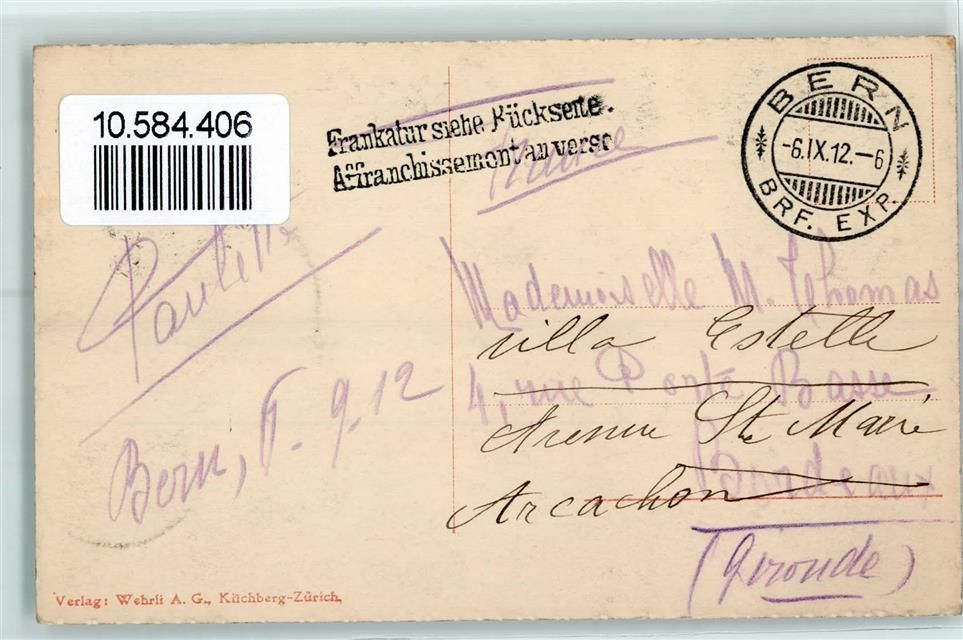 10.584.406
Frankatur siehe Rückseite.
Affranchissement au verso
BERN
-6.IX.12.-6
BRF. EXP.
France
Paulette
Bern, 6.9.12
Mademoiselle M. Thomas
4, rue Porte Basse
Bordeaux
(Gironde)
villa Estelle
Avenue Ste Marie
Arcachon
Verlag: Wehrli A. G., Kilchberg-Zürich.